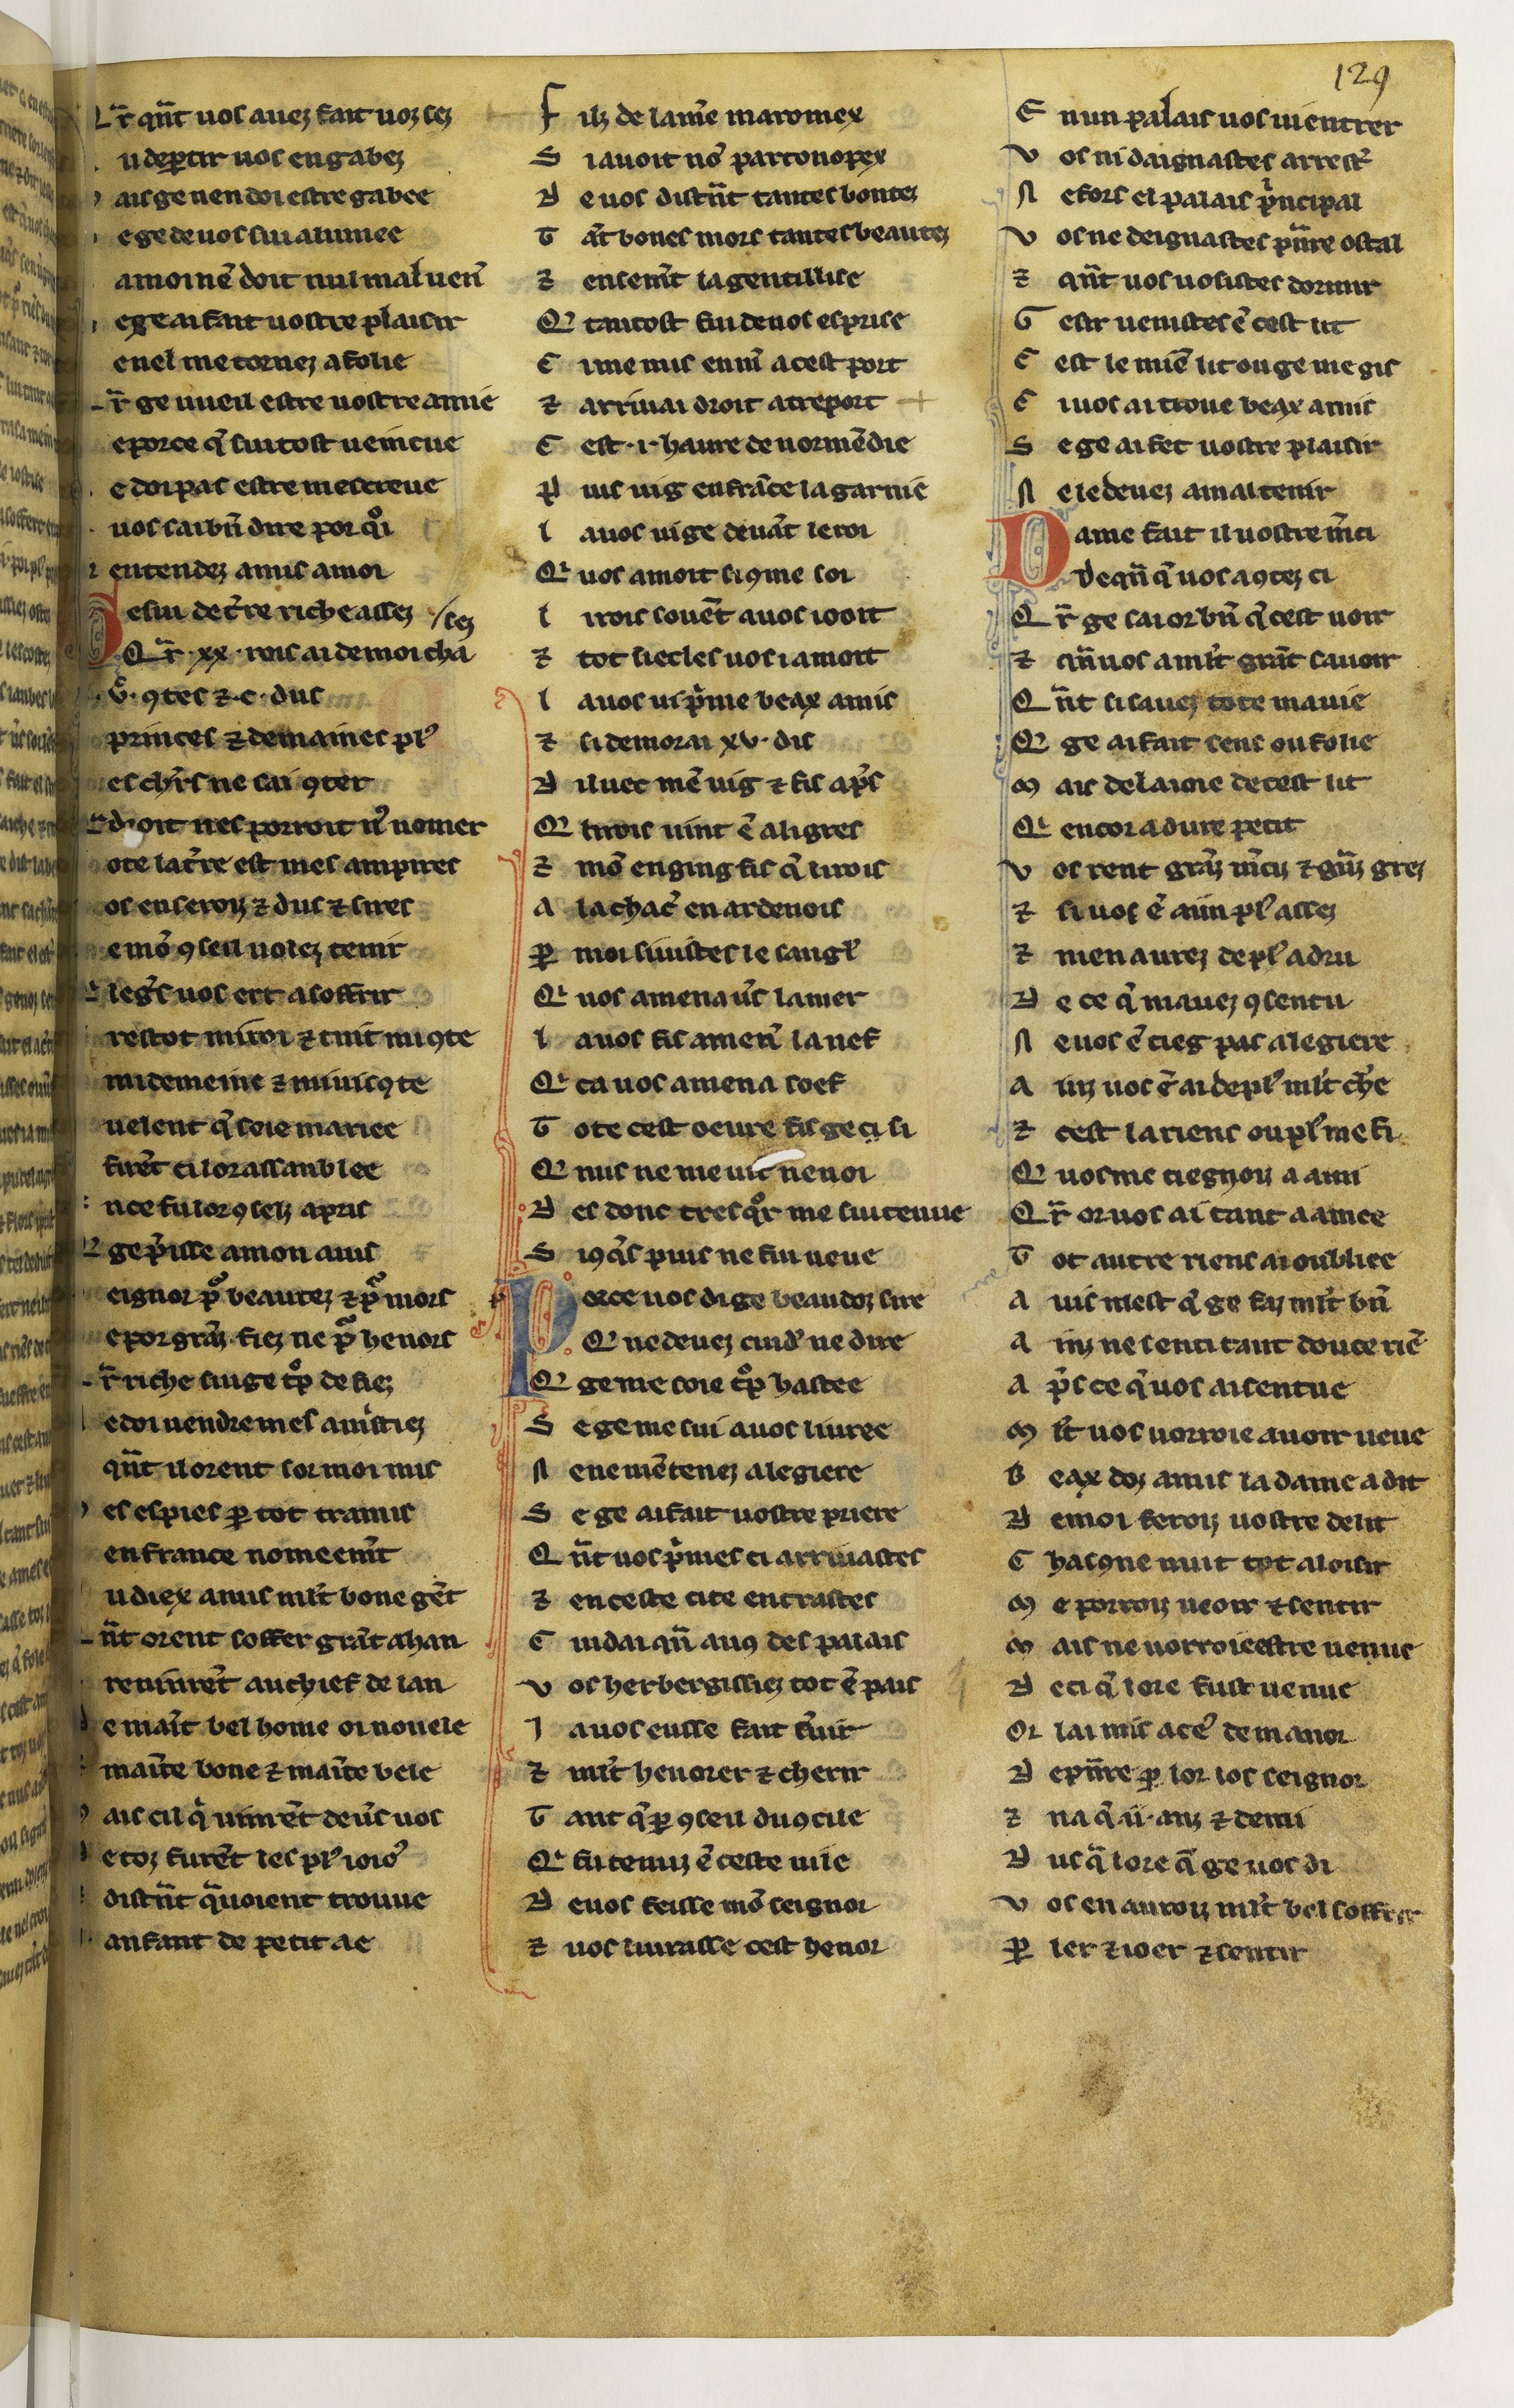 129
r̄ qn̄t uos auez fait uoz sez
u deꝑtir uos en gabez
ais ge nen doi estre gabee
e ge de uos sui alumee
a moi nē doit nul mal uen̄
e ge ai fait uostre plaisir
e nel me tornez a folie
r̄ ge uueil estre uostre amie
e porce q̄ sui tost ueincue
e doi pas estre mescreue
uos sai bn̄ dire por qoi
entendez amis a moi
esui de t̄re riche assez
Qr̄ .xx. rois ai de moi cha/sez
ꝯtes ⁊ .c. dus
princes ⁊ demaines plꝰ
es chrs̄ ne sai ꝯter
droit nes porroit nꝰ nomer
ote la t̄re est mes ampires
os en seroiz ⁊ dus ⁊ sires
e mō ꝯseil uolez tenir
leḡs uos ert a soffrir
restot mi roi ⁊ tuit mi ꝯte
mi demeine ⁊ mi uicꝯte
uelent q̄ soie mariee
firēt ci lor assanblee
nce fu lor ꝯselz apris
ge p̄isse a mon auis
eignor pō beautez ⁊ pō mors
e por grāz fiez ne pō henors
r̄ riche sui ge trop de fiez
e doi uendre mes amistiez
qn̄t il orent sor moi mis
es espies ꝑ tot tramis
en france nomeem̄t
u diex amis ml̄t bone gēt
n̄t orent soffer grāt ahan
reuinrēt au chief de lan
e maīt bel home oi nouele
maīte bone ⁊ maīte bele
ais cil q̄ uinrēt deūs uos
e toz furēt les plꝰ ioiōs
distrēt q̄uoient trouue
anfant de petit ae
F ilz de lam̄e maromex
S i auoit nō partonopex
D e uos distrēt tantes bontez
T āt bones mors tantes beautez
⁊ ensem̄t la gentillise
Q tantost fui de uos esprise
C i me mis en m̄ a cest port
⁊ arriuai droit atreport
C est .i. haure de normēdie
P uis uig en frāce la garnie
l a uos ui ge deuāt le roi
Q uos amoit si ꝯme soi
l i rois souēt a uos iooit
⁊ tot siecles uos i amoit
l a uos ui p̄me beax amis
⁊ si demorai xv. dis
D iluec mē uig ⁊ fis ap̄s
Q li rois uint ē aligres
⁊ mō enging fis q̄ li rois
A la chac̄ en ardenois
ꝑ moi siuistes le sangl̄
Q uos amena ūs la mer
l a uos fis amen̄ la nef
Q ca uos amena soef
T ote cest oeure fis ge ci si
Q nus ne me uit ne noi
D es donc tresqr̄ me sui tenue
S i ꝯq̄s puis ne fui ueue
P orce uos di ge beau doz sire
Q ne deuez cuid̄ ne dire
Q ge me soie trop hastee
S e ge me sui a uos liuree
N e ne mē tenez a legiere
S e ge ai fait uostre priere
Q n̄t uos p̄mes ci arriuastes
⁊ en ceste cite entrastes
C uidai qn̄ auꝯ des palais
V os herbergissiez tot ē pais
I a uos eusse fait s̄uir
⁊ ml̄t henorer ⁊ cherir
T ant q̄ ꝑ ꝯseil du ꝯcile
Q fu tenuz ē ceste uile
D e uos feisse mō seignor
⁊ uos liurasse cest henor
E nun palais uos ui entrer
V os ni daignastes arrest̄
N e fors el palais p̄ncipal
V os ne deignastes pn̄re ostal
⁊ qn̄t uos uosistes dormir
G esir uenistes ē cest lit
C est le miē lit ou ge me gis
C i uos ai troue beax amis
S e ge ai fet uostre plaisir
N e le deuez a mal tenir
D ame fait il uostre m̄ci
De qn̄ q̄ uos aꝯtez ci
Q r̄ ge sai or bn̄ q̄ cest uoir
⁊ qn̄ uos a ml̄t grāt sauoir
Q n̄t si sauez tote ma uie
Q ge ai fait sens ou folie
M ais de laise de cest lit
Q encor a dure petit
V os rent grāz m̄ciz ⁊ grāz grez
⁊ si uos ē aim plꝰ assez
⁊ men aurez de plꝰ a dru
D e ce q̄ mauez ꝯsentu
N e uos ē tieg pas a legiere
A inz uos ē ai de plꝰ ml̄t ch̄e
⁊ cest la riens ou plꝰ me fi
Q uos me tiegnoiz a ami
Q r̄ or uos ai tant aamee
T ot autre riens ai oubliee
A uis mest q̄ ge faz ml̄t bn̄
A inz ne senti tant douce riē
A p̄s ce q̄ uos ai sentue
M l̄t uos uorroie auoir ueue
B eax doz amis la dame a dit
D e moi feroiz uostre delit
C hascune nuit tot a loisir
M e porroiz ueoir ⁊ sentir
M ais ne uorroie estre ueuue
D eci q̄ lore fust uenue
Or lai mis a ce de manor
D e pn̄re ꝑ lor los seignor
⁊ na q̄ .ii. anz ⁊ demi
D usq̄ lore q̄ ge uos di
V os en auroiz ml̄t bel soffrir
ꝑ ler ⁊ ioer ⁊ sentir